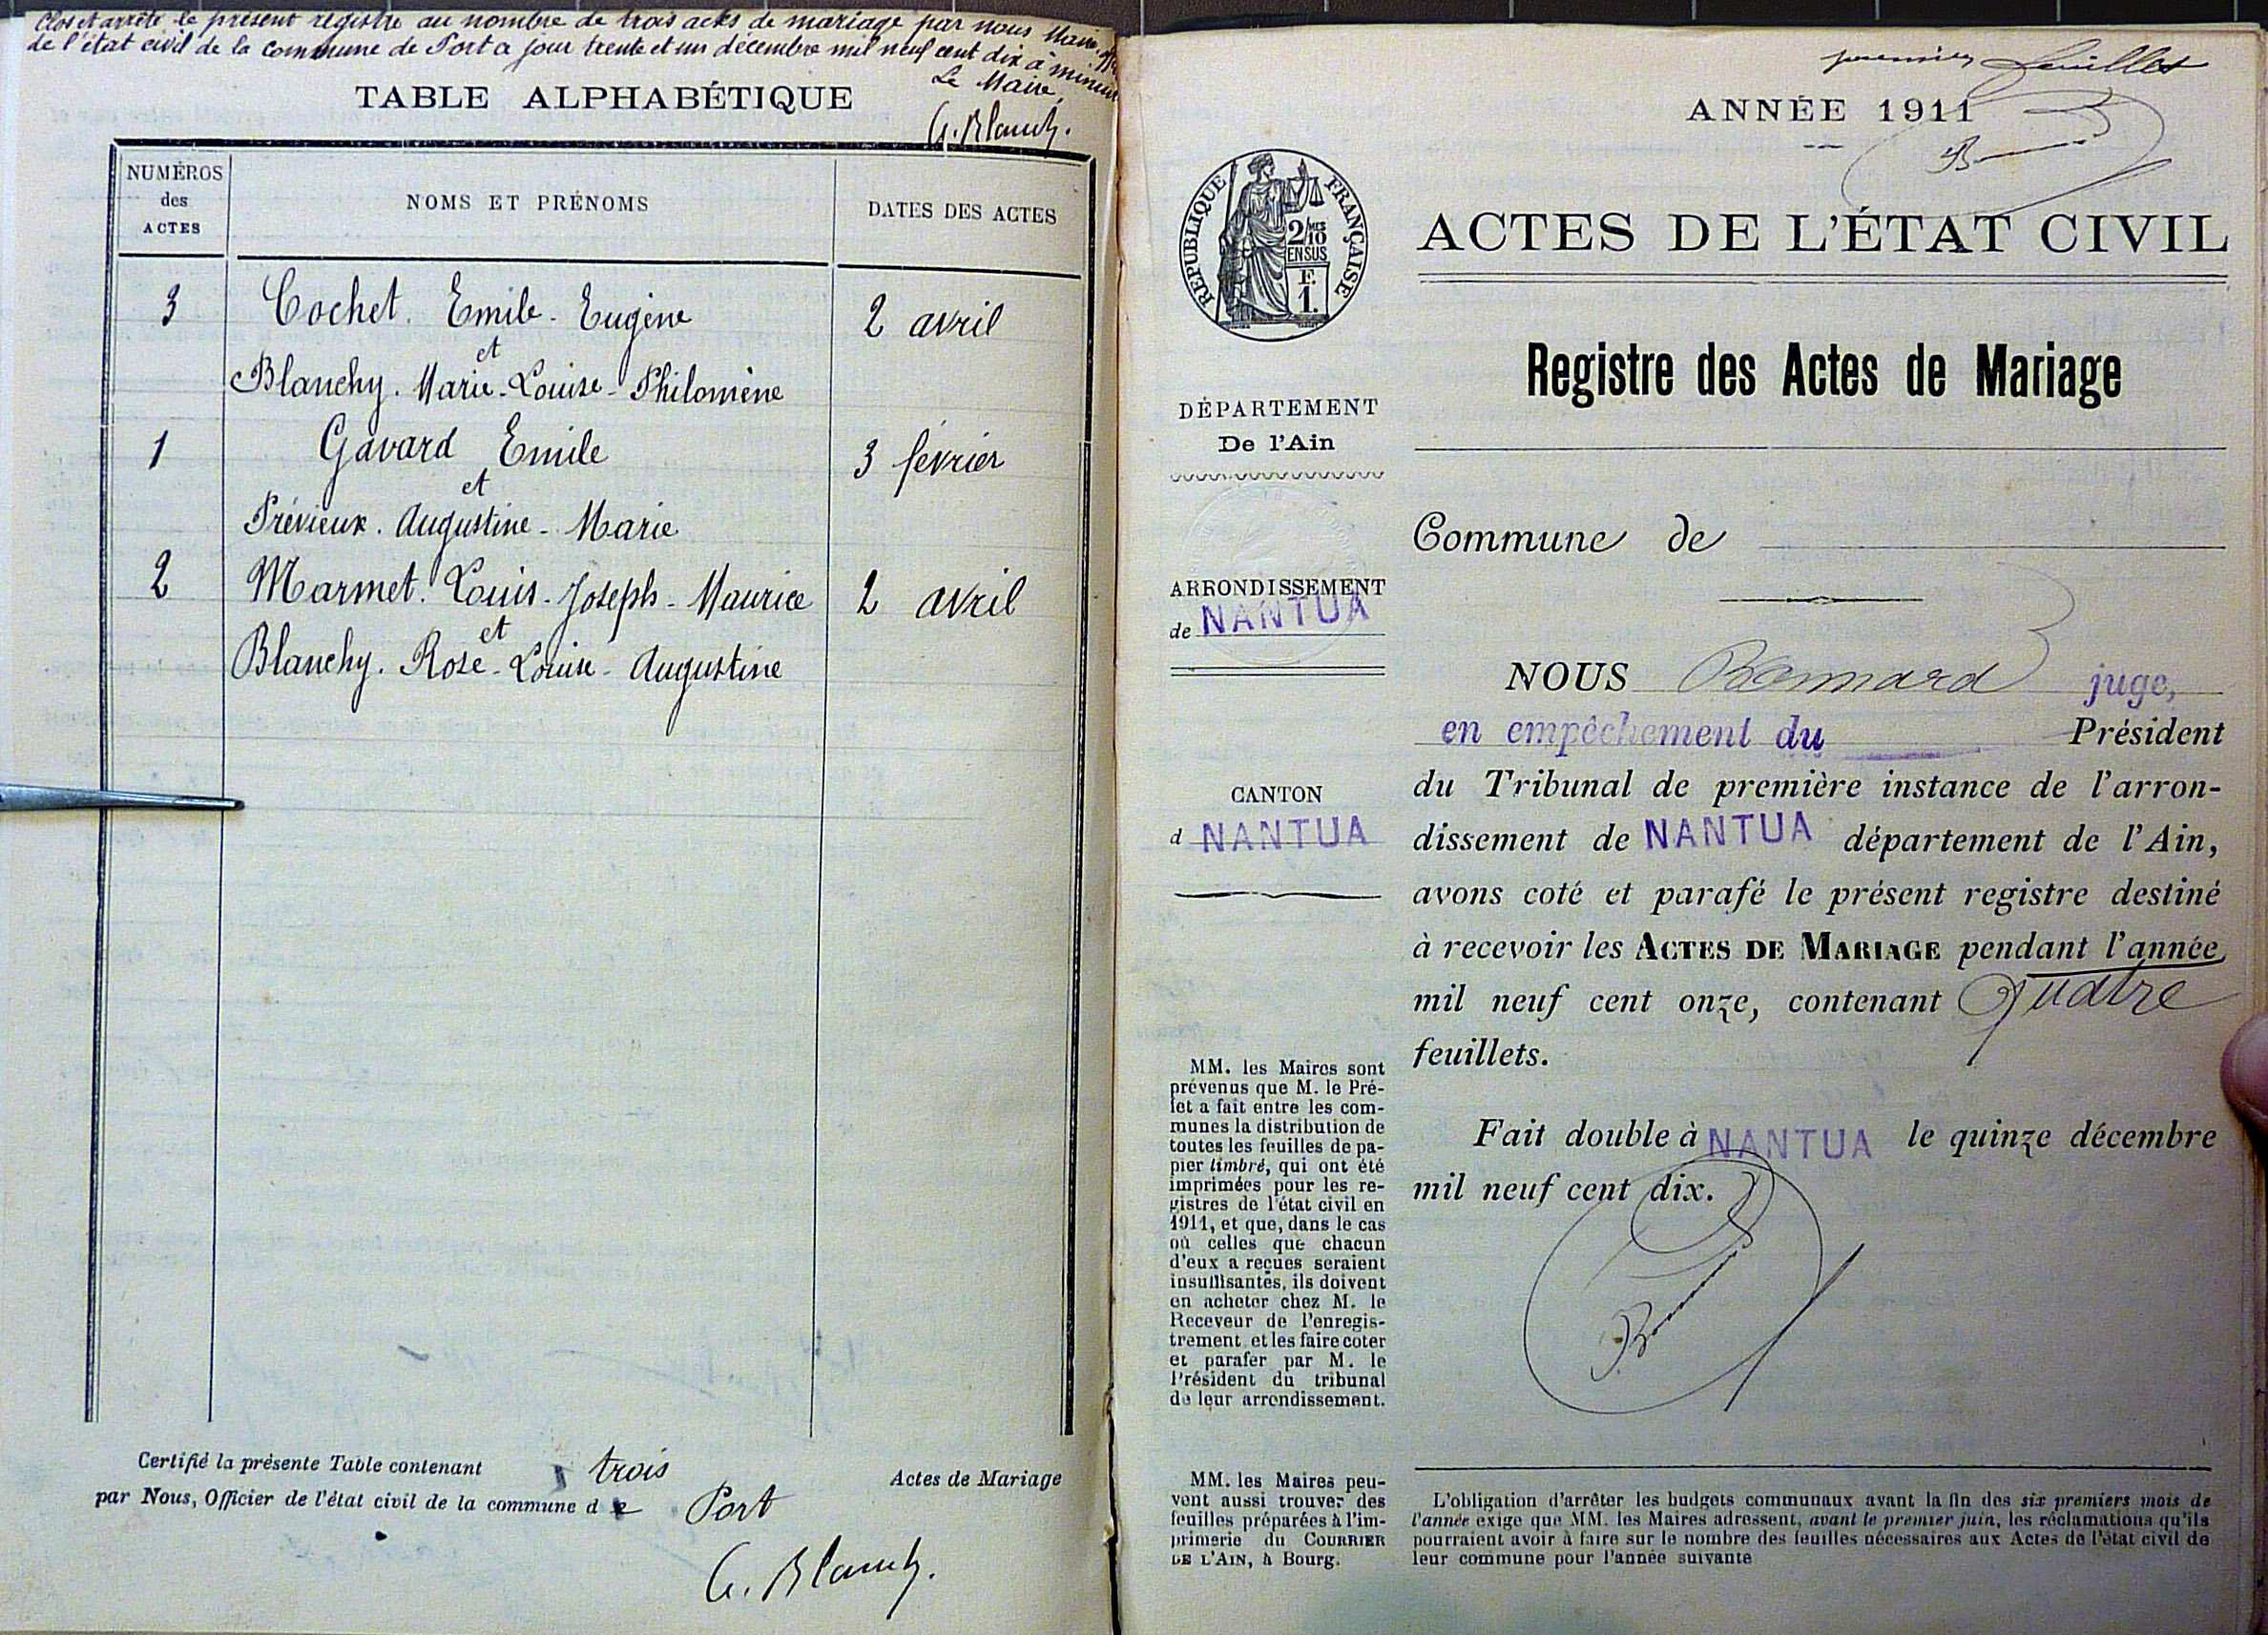 Clos et arrêté le présent registre au nombre de trois actes de mariage par nous Maire, off
de l'état civil de la commune de Port ce jour trente et un décembre mil neuf cent dix à minuit
Le Maire,
G. Blanchy.
TABLE ALPHABÉTIQUE
NUMÉROS des ACTES
NOMS ET PRÉNOMS
DATES DES ACTES
3 Cochet. Emile. Eugène 2 avril
et
Blanchy. Marie-Louise-Philomène
1 Gavard Emile 3 février
et
Prévieux. Augustine-Marie
2 Marmet. Louis-Joseph-Maurice 2 avril
et
Blanchy. Rose-Louise-Augustine
Certifié la présente Table contenant trois Actes de Mariage
par Nous, Officier de l'état civil de la commune de Port
G. Blanchy.
premier feuillet
ANNÉE 1911
RÉPUBLIQUE FRANÇAISE
2/10 MES
EN SUS
F.
1.
ACTES DE L'ÉTAT CIVIL
Registre des Actes de Mariage
DÉPARTEMENT
De l'Ain
ARRONDISSEMENT
de NANTUA
CANTON
d NANTUA
MM. les Maires sont
prévenus que M. le Pré-
fet a fait entre les com-
munes la distribution de
toutes les feuilles de pa-
pier timbré, qui ont été
imprimées pour les re-
gistres de l'état civil en
1911, et que, dans le cas
où celles que chacun
d'eux a reçues seraient
insuffisantes, ils doivent
en acheter chez M. le
Receveur de l'enregis-
trement et les faire coter
et parafer par M. le
Président du tribunal
de leur arrondissement.
MM. les Maires peu-
vent aussi trouver des
feuilles préparées à l'im-
primerie du COURRIER
DE L'AIN, à Bourg.
Commune de
NOUS Bonnard juge,
en empêchement du Président
du Tribunal de première instance de l'arron-
dissement de NANTUA département de l'Ain,
avons coté et parafé le présent registre destiné
à recevoir les ACTES DE MARIAGE pendant l'année
mil neuf cent onze, contenant quatre
feuillets.
Fait double à NANTUA le quinze décembre
mil neuf cent dix.
L'obligation d'arrêter les budgets communaux avant la fin des six premiers mois de
l'année exige que MM. les Maires adressent, avant le premier juin, les réclamations qu'ils
pourraient avoir à faire sur le nombre des feuilles nécessaires aux Actes de l'état civil de
leur commune pour l'année suivante